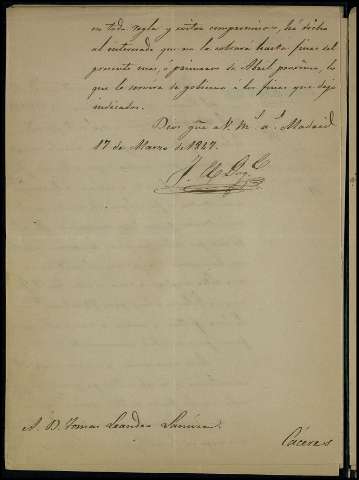 en toda regla y evitar compromisos, hé dicho
al interesado que no la cobrara hasta fines del
presente mes, ó primeros de Abril proximo, lo
que le servira de gobierno a los fines que dejo
indicados.
Dios gue a V. ms. as. Madrid
17 de Marzo de 1847.
A. D. Tomas Leandro
Cáceres